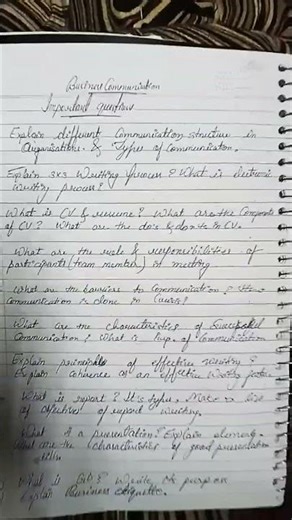 Business Communication
Important questions
Explain different Communication structure in
Organisations & Types of Communication.
Explain 3x3 Writing process? What is electronic
writing process?
What is CV & resume? What are the Components
of CV? What are the do's & don'ts in CV.
What are the role & responsibilities of
participants (team member) in meeting
What are the barriers to Communication? How
Communication is done in
What are the characteristics of Successful
Communication? What is Imp. of Communication
Explain principles of effective writing?
Explain coherence as an effective writing
What is report? It's types, Make a list
of objectives of report writing.
What is a presentation? Explain elements.
What are the characteristics of good presentation
skills
What is GD? Write its purpose
Explain Business etiquettes.